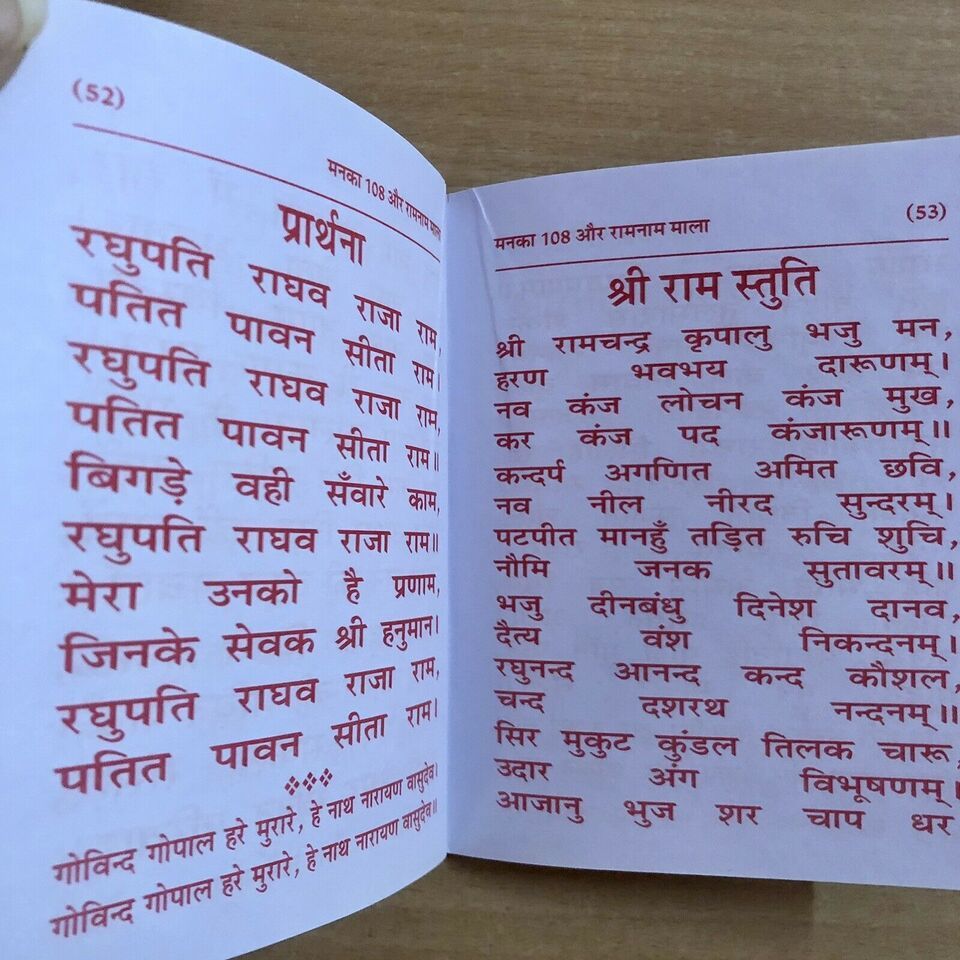 (52)
मनका 108 और रामनाम माला
प्रार्थना
रघुपति राघव राजा राम,
पतित पावन सीता राम।
रघुपति राघव राजा राम,
पतित पावन सीता राम॥
बिगड़े वही सँवारे काम,
रघुपति राघव राजा राम॥
मेरा उनको है प्रणाम,
जिनके सेवक श्री हनुमान।
रघुपति राघव राजा राम,
पतित पावन सीता राम।
गोविन्द गोपाल हरे मुरारे, हे नाथ नारायण वासुदेव।
गोविन्द गोपाल हरे मुरारे, हे नाथ नारायण वासुदेव॥
मनका 108 और रामनाम माला (53)
श्री राम स्तुति
श्री रामचन्द्र कृपालु भजु मन,
हरण भवभय दारूणम्।
नव कंज लोचन कंज मुख,
कर कंज पद कंजारूणम्॥
कन्दर्प अगणित अमित छवि,
नव नील नीरद सुन्दरम्।
पटपीत मानहुँ तड़ित रुचि शुचि,
नौमि जनक सुतावरम्॥
भजु दीनबंधु दिनेश दानव,
दैत्य वंश निकन्दनम्।
रघुनन्द आनन्द कन्द कौशल,
चन्द दशरथ नन्दनम्॥
सिर मुकुट कुंडल तिलक चारू,
उदार अंग विभूषणम्।
आजानु भुज शर चाप धर